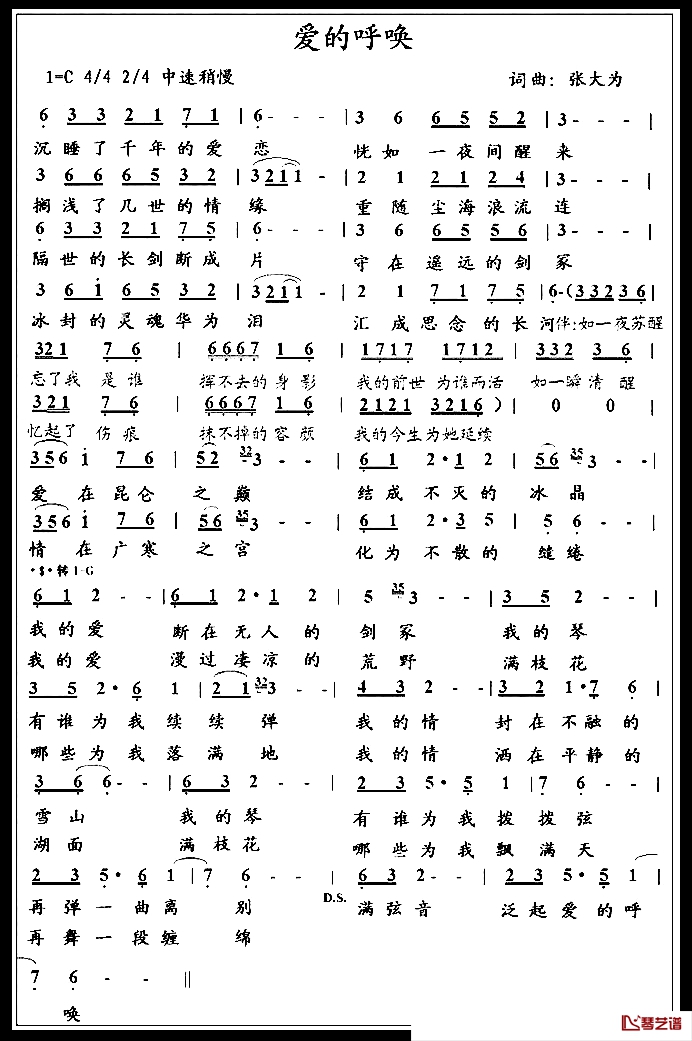 爱的呼唤
1=C 4/4 2/4 中速稍慢 词曲：张大为
6 3 3 2 1 7 1 | 6 - - - | 3 6 6 5 5 2 | 3 - - - |
沉睡了千年的爱 恋 恍如 一夜间醒 来
3 6 6 6 5 3 2 | 3 2 1 1 - | 2 1 2 1 2 4 | 3 - - - |
搁浅了几世的情 缘 重随 尘海浪流 连
6 3 3 2 1 7 5 | 6 - - - | 3 6 6 5 5 6 | 3 - - - |
隔世的长剑断成 片 守在 遥远的剑 冢
3 6 i 6 5 3 2 | 3 2 1 1 - | 2 1 7 1 7 5 | 6 - ( 3 3 2 3 6 |
冰封的灵魂华为 泪 汇成思念的长 河伴:如一夜苏醒
3 2 1 7 6 | 6 6 6 7 1 6 | 1 7 1 7 1 7 1 2 | 3 3 2 3 6 |
忘了我 是谁 挥不去的身影 我的前世 为谁而活 如一瞬清醒
3 2 1 7 6 | 6 6 6 7 1 6 | 2 1 2 1 3 2 1 6 ) | 0 0 |
忆起了 伤痕 抹不掉的容颜 我的今生为她延续
3 5 6 i 7 6 | 5 2 32 3 - - | 6 1 2 · 1 2 | 5 6 35 3 - - |
爱 在昆仑 之 巅 结成 不灭的 冰晶
3 5 6 i 7 6 | 5 6 35 3 - - | 6 1 2 · 3 5 | 5 6 - - |
情 在广寒 之宫 化为 不散的 缱绻
·$·转1-G
6 1 2 - - | 6 1 2 · 1 2 | 5 35 3 - - | 3 5 2 - - |
我的爱 断在无人的 剑冢 我的琴
我的爱 漫过凄凉的 荒野 满枝花
3 5 2 · 6 1 | 2 1 32 3 - - | 4 3 2 - - | 3 2 1 · 7 6 |
有谁为我续 续弹 我的情 封在不融的
哪些为我落 满地 我的情 洒在平静的
3 6 6 - - | 6 3 2 - - | 2 3 5 · 5 1 | 7 6 - - |
雪山 我的琴 有谁为我拨 拨弦
湖面 满枝花 哪些为我飘 满天
2 3 5 · 6 1 | 7 6 - - | 6 3 2 - - | 2 3 5 · 5 1 |
D.S.
再弹一曲离 别 满弦音 泛起爱的呼
再舞一段缠 绵
7 6 - - ‖
唤
琴艺谱